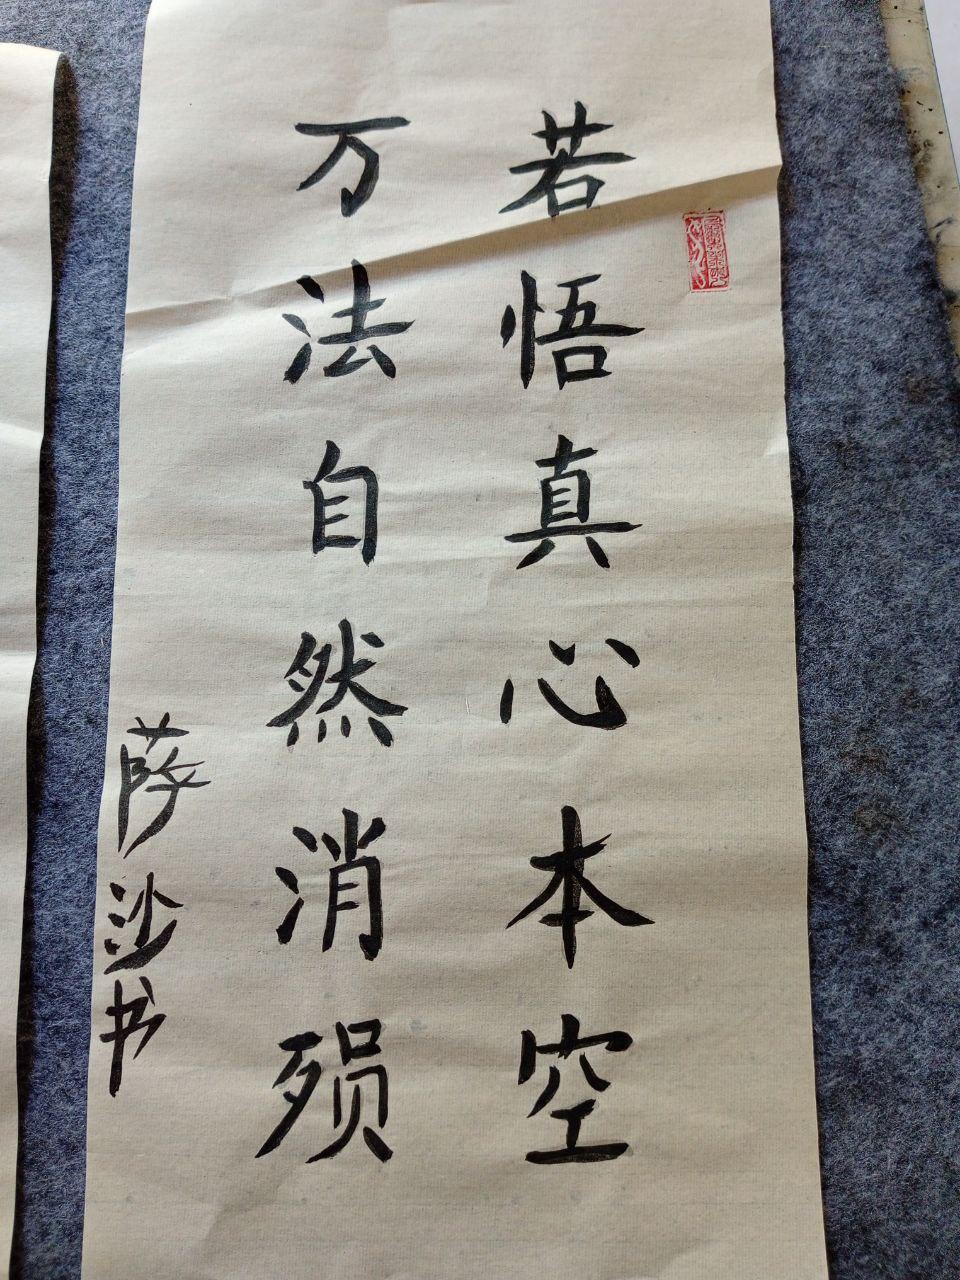 若悟真心本空
万法自然消殒
萨沙书